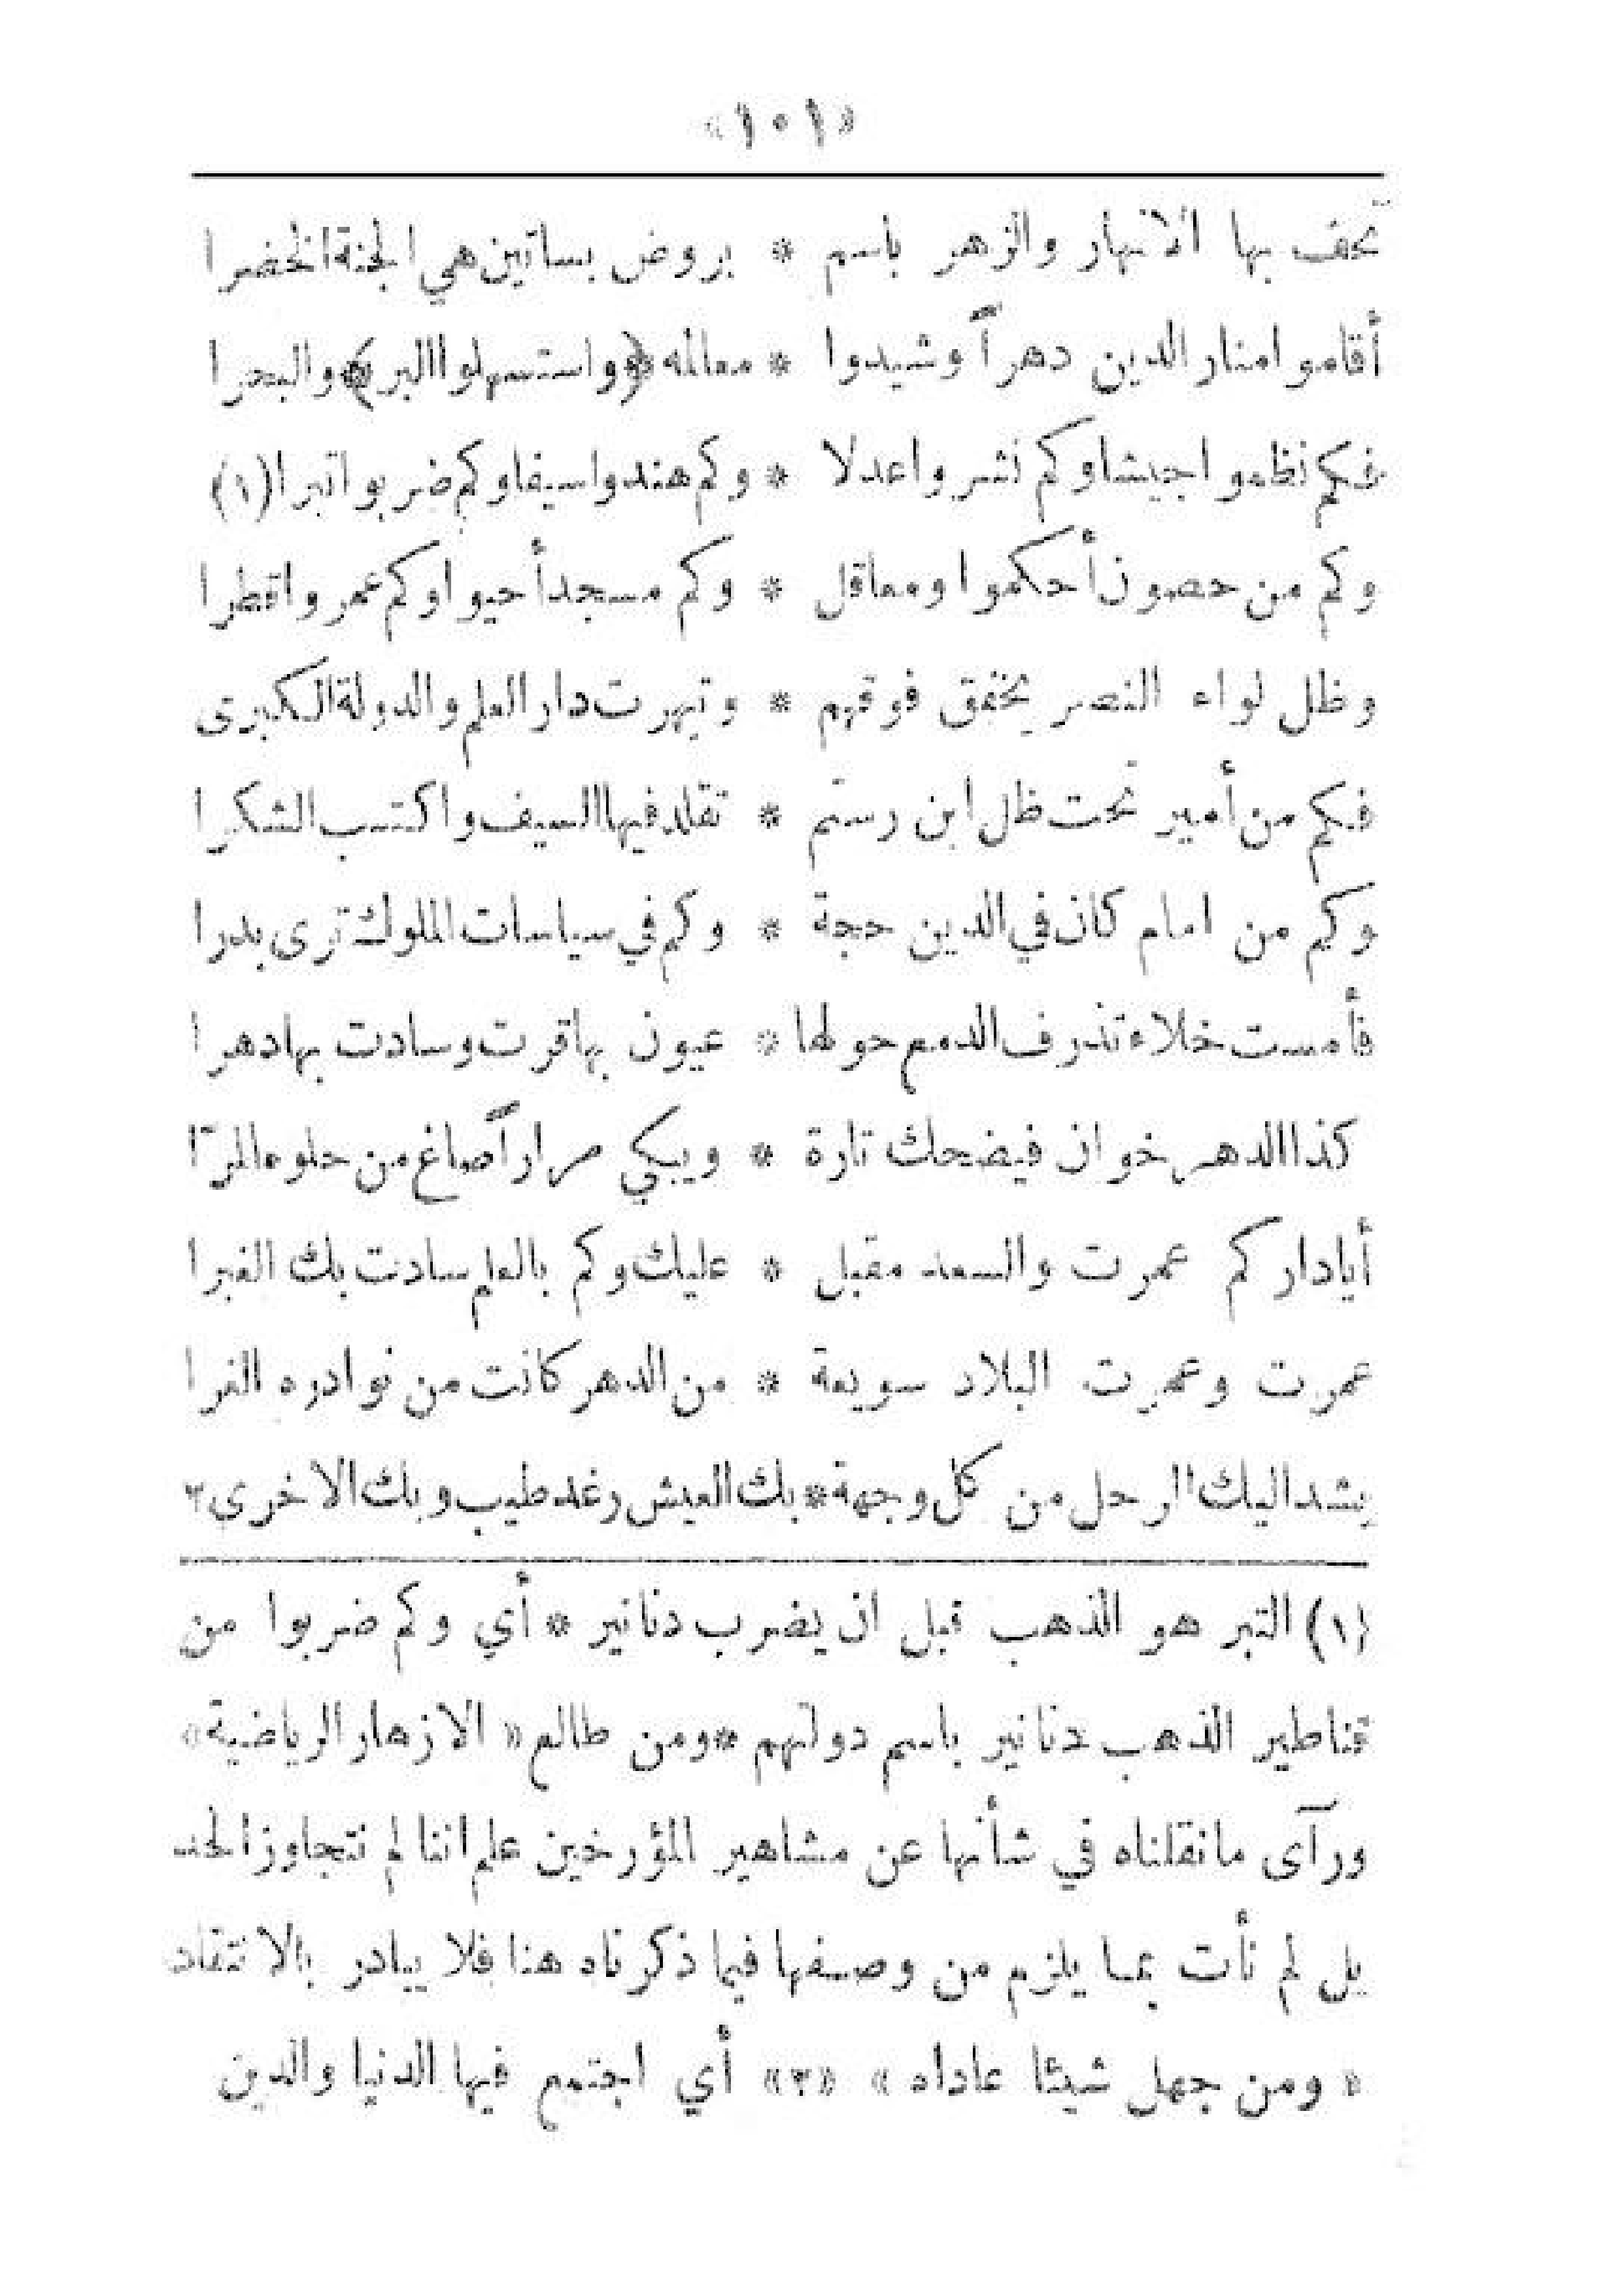 «١٠١»
تحف بها الانهار والزهر باسم * بروض بساتين هي الجنة الخضرا
أقاموا منار الدين دهراً وشيدوا * معالمه ﴿واستسهلوا البر﴾ والبحرا
فكم نظموا جيشا وكم نشروا عدلا * وكم هندوا سيفا وكم ضربوا تبرا (١)
وكم من حصون أحكموا ومعاقل * وكم مسجد أحيوا وكم عمروا قطرا
وظل لواء النصر يخفق فوقهم * وتيهرت دار العلم والدولة الكبرى
فكم من أمير تحت ظل ابن رستم * تقلد فيها السيف واكتسب الشكرا
وكم من امام كان في الدين حجة * وكم في سياسات الملوك ترى بدرا
فأمست خلاء تذرف الدمع حولها * عيون بها قرت وسادت بها دهرا
كذا الدهر خوان فيضحك تارة * ويبكي مراراً صاغ من حلوه المرّا
أيا دار كم عمرت والسعد مقبل * عليك وكم بالعلم سادت بك الغبرا
عمرت وعمرت البلاد سويعة * من الدهر كانت من نوادره الغرا
يشد اليك الرحل من كل وجهة * بك العيش رغد طيب وبك الاخرى ٢
(١) التبر هو الذهب قبل ان يضرب دنانير * أي وكم ضربوا من
قناطير الذهب دنانير باسم دولتهم * ومن طالع « الازهار الرياضية»
ورآى ما نقلناه في شأنها عن مشاهير المؤرخين علم اننا لم نتجاوز الحد
بل لم نأت بما يلزم من وصفها فيما ذكرناه هنا فلا يبادر بالانتقاد
« ومن جهل شيئا عاداه » «٢» أي اجتمع فيها الدنيا والدين